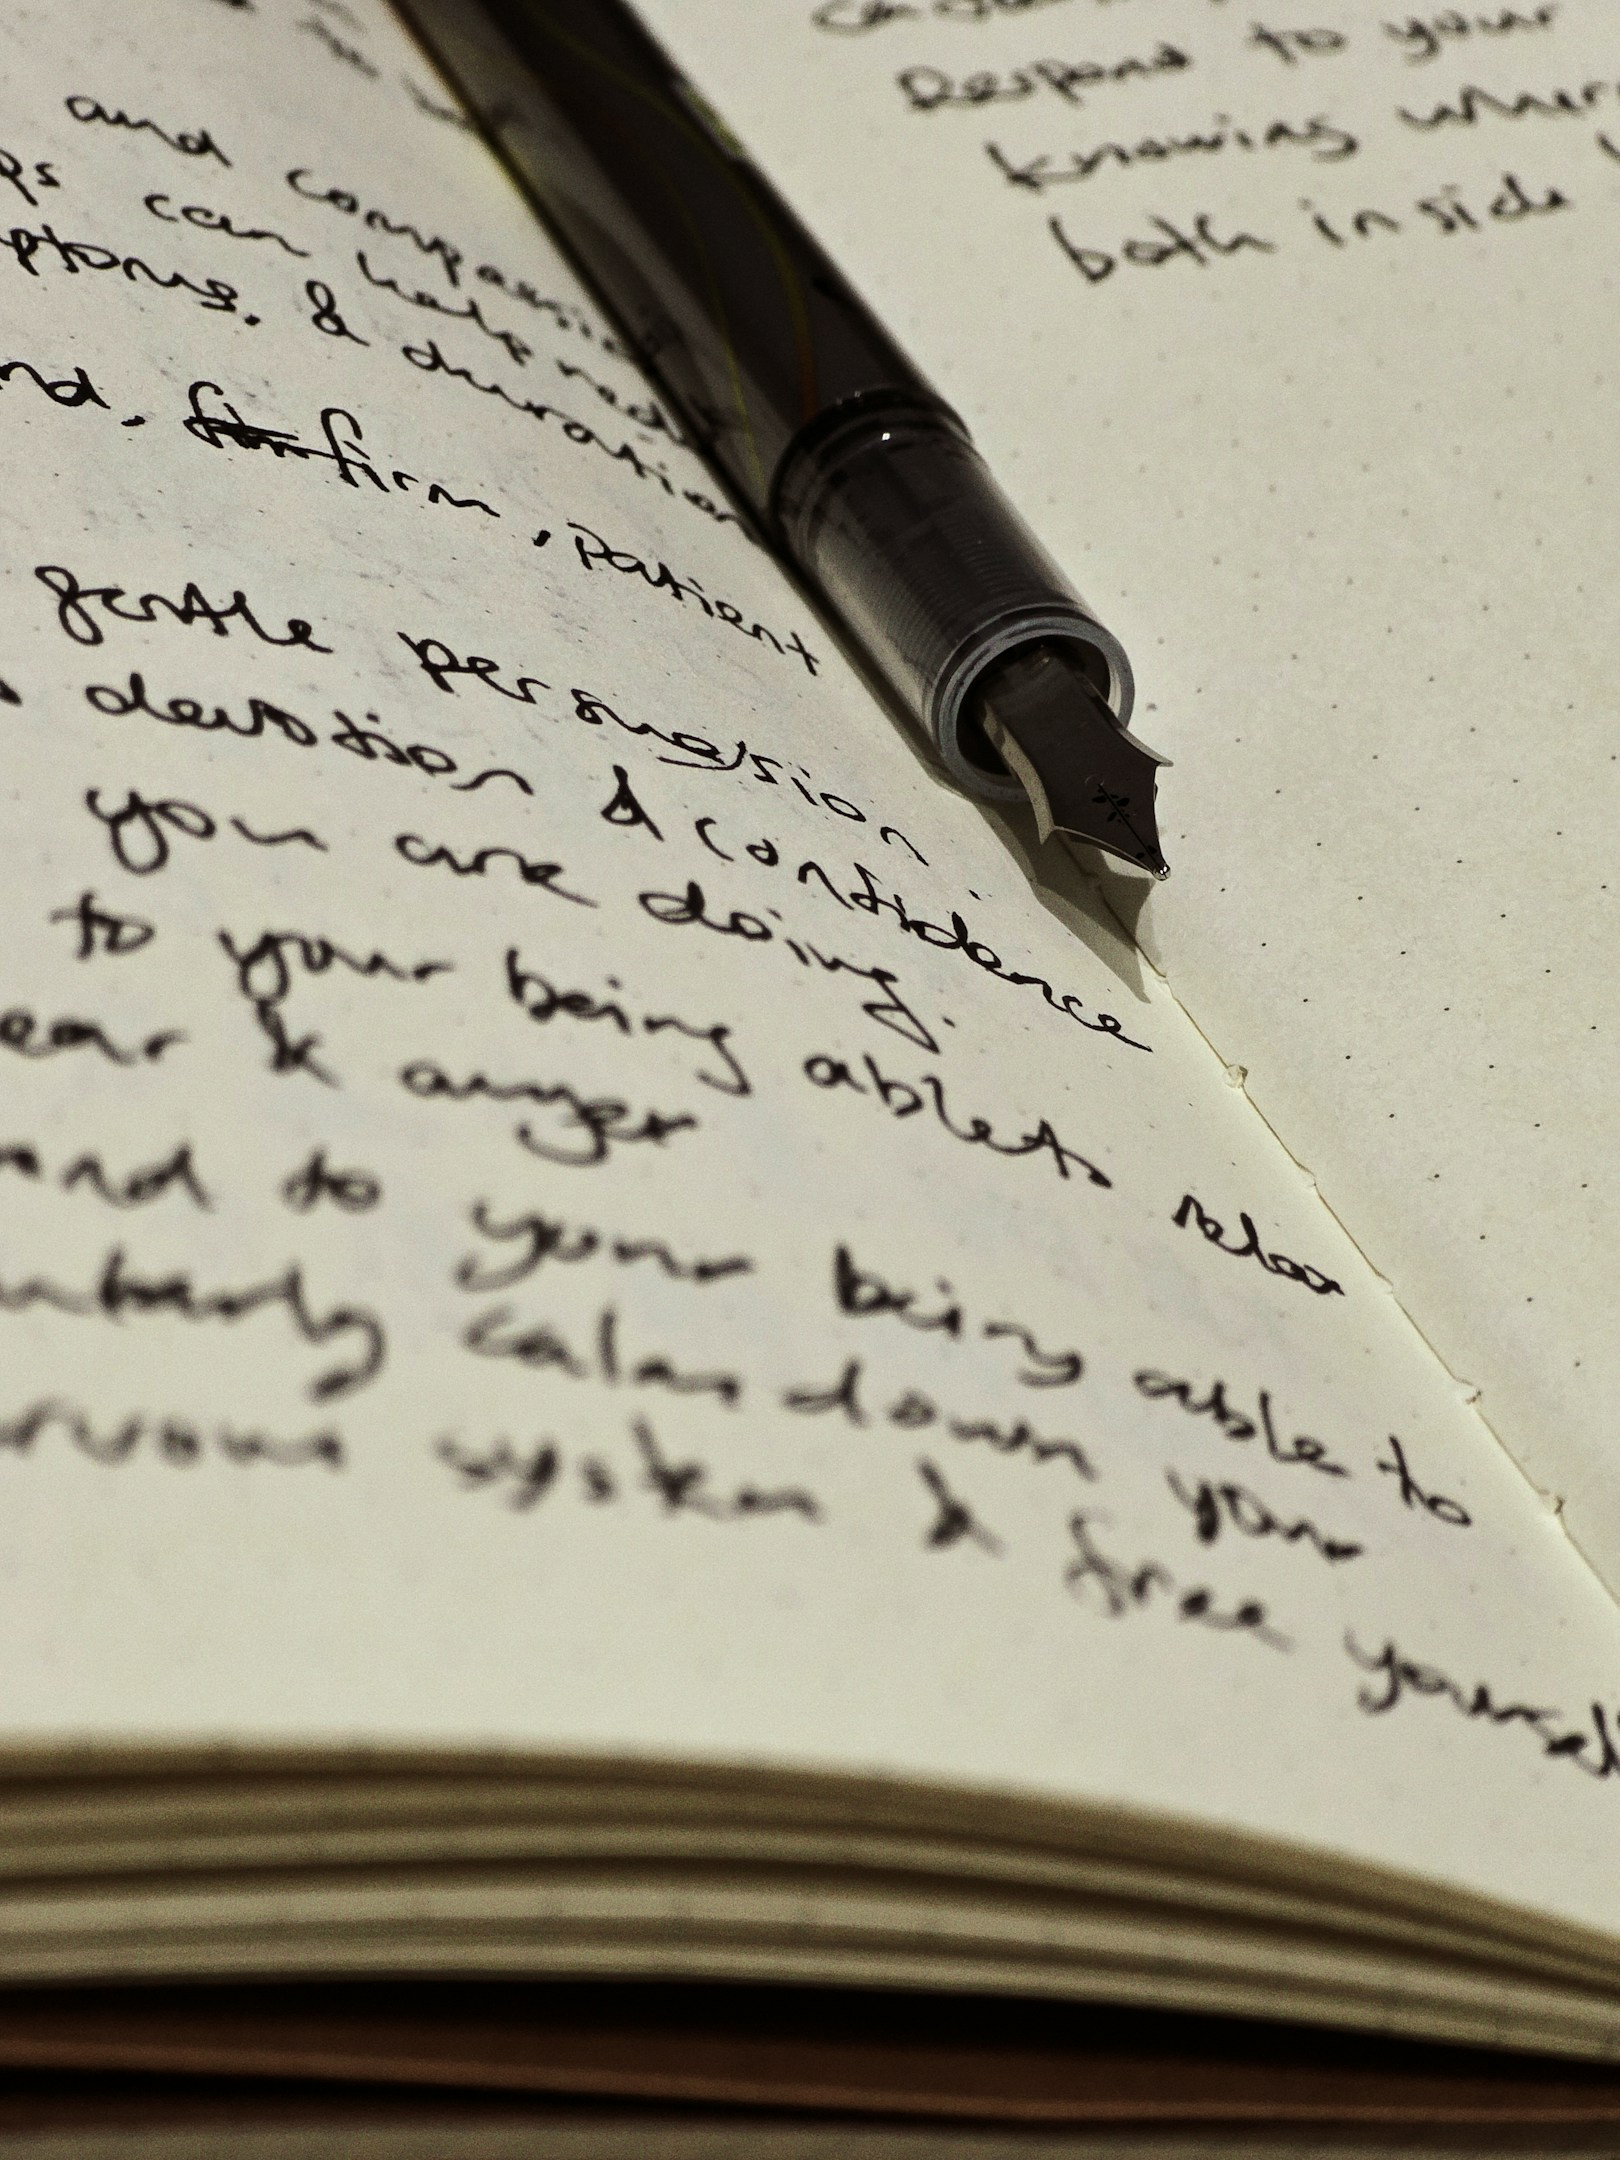 and compassion
ps can help redu
ptoms. & duration
nd, firm, Patient
gentle persuasion
devotion & confidence
you are doing.
to your being able to relax
ear & anger
and to your being able to
calm down your
rvous system & free yoursel
Respond to your
knowing wher
both inside